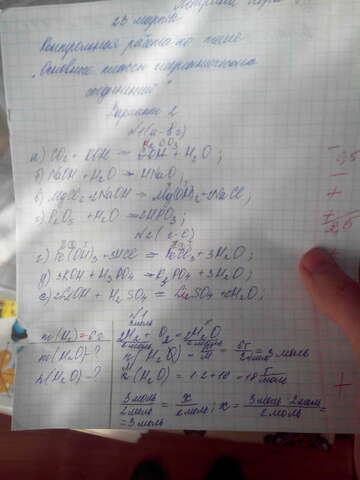 23 марта
Контрольная работа по теме
„Основные классы неорганических
соединений"
Вариант 2
№1(а-в г)
а) CO₂ + KOH = + H₂O ;
б) NaOH + H₂O =
в) MgCl₂ + 2NaOH = Mg(OH)₂ + 2NaCl;
г) P₂O₅ + H₂O = 2HPO₃;
№2 (г-е)
г) Fe(OH)₃ + 3HCl = FeCl₃ + 3H₂O;
д) 3KOH + H₃PO₄ = K₃PO₄ + 3H₂O;
е) 2LiOH + H₂SO₄ = Li₂SO₄ + 2H₂O;
3 моль
m(H₂) = 6г
2H₂ + O₂ = 2H₂O
2 моль 2 моль
m(H₂O) - ?
= 6г = 3 моль
n(H₂O) - ?
(H₂O) = 1·2+16 = 18 г/моль
3 моль / 2 моль = x / 2 моль ; x = 3 моль · 2 моль / 2 моль =
= 3 моль